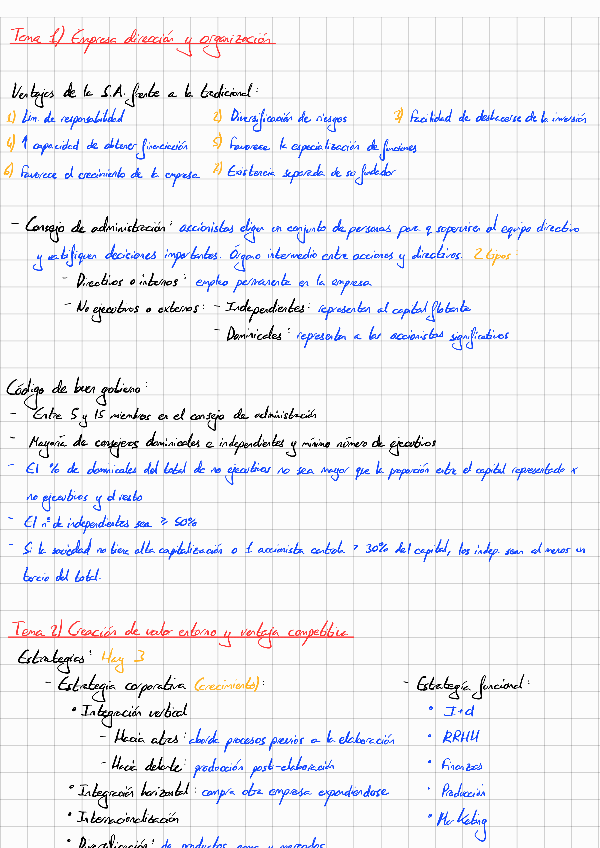 Tema 1) Empresa dirección y organización
Ventajas de la S.A. frente a la tradicional:
1) Lim. de responsabilidad 2) Diversificación de riesgos 3) Facilidad de deshacerse de la inversión
4) ↑ capacidad de obtener financiación 5) Favorece la especialización de funciones
6) Favorece el crecimiento de la empresa 7) Existencia separada de su fundador
- Consejo de administración: accionistas eligen un conjunto de personas para q supervisen al equipo directivo
y ratifiquen decisiones importantes. Órgano intermedio entre acciones y directivos. 2 tipos:
- Directivos o internos: empleo permanente en la empresa
- No ejecutivos o externos: - Independientes: representan al capital flotante
- Dominicales: representan a los accionistas significativos
Código de buen gobierno:
- Entre 5 y 15 miembros en el consejo de administración
- Mayoría de consejeros dominicales e independientes y mínimo número de ejecutivos
- El % de dominicales del total de no ejecutivos no sea mayor que la proporción entre el capital representado x
no ejecutivos y el resto
- El nº de independientes sea ≥ 50%
- Si la sociedad no tiene alta capitalización o 1 accionista controla > 30% del capital, los indep. sean al menos un
tercio del total.
Tema 2) Creación de valor entorno y ventaja competitiva
Estrategias: Hay 3
- Estrategia corporativa (crecimiento):
• Integración vertical
- Hacia atrás: aborda procesos previos a la elaboración
- Hacia delante: producción post-elaboración
• Integración horizontal: compra otra empresa expandiendose
• Internacionalización
• Diversificación: de productos
- Estrategia funcional:
• I+d
• RRHH
• Finanzas
• Producción
• Marketing